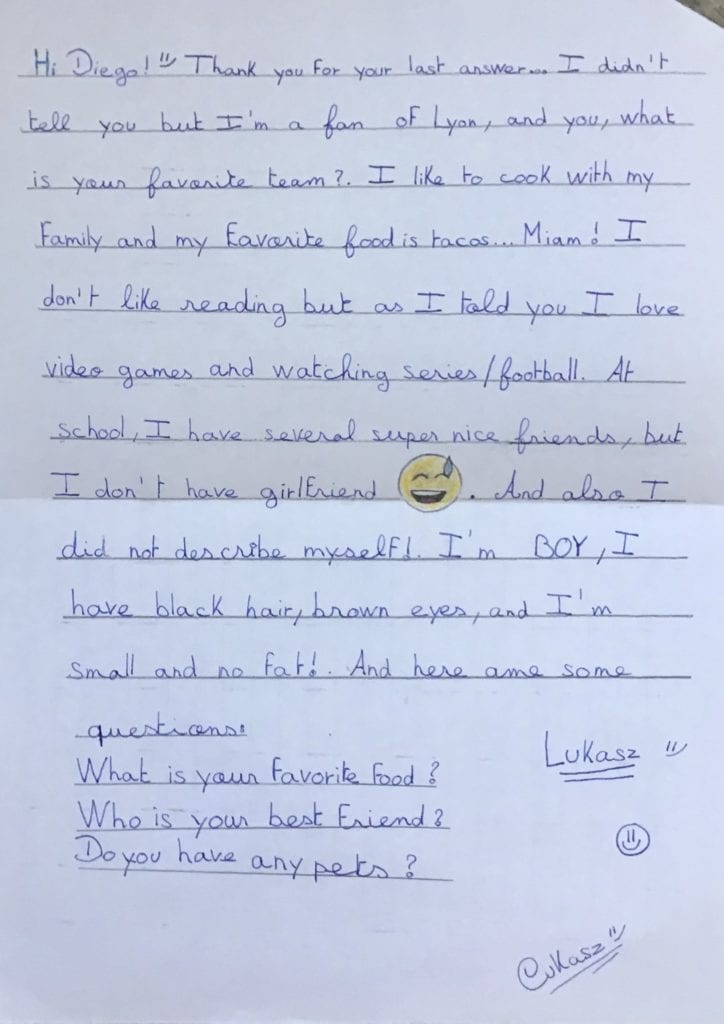 Hi Diego! Thank you for your last answer... I didn't
tell you but I'm a fan of Lyon, and you, what
is your favorite team?. I like to cook with my
family and my favorite food is tacos... Miam! I
don't like reading but as I told you I love
video games and watching series/football. At
school, I have several super nice friends, but
I don't have girlfriend 😅. And also I
did not describe myself!. I'm BOY, I
have black hair, brown eyes, and I'm
small and no fat!. And here ame some
questions:
What is your favorite food?
Lukasz
Who is your best friend?
Do you have any pets?
Lukasz